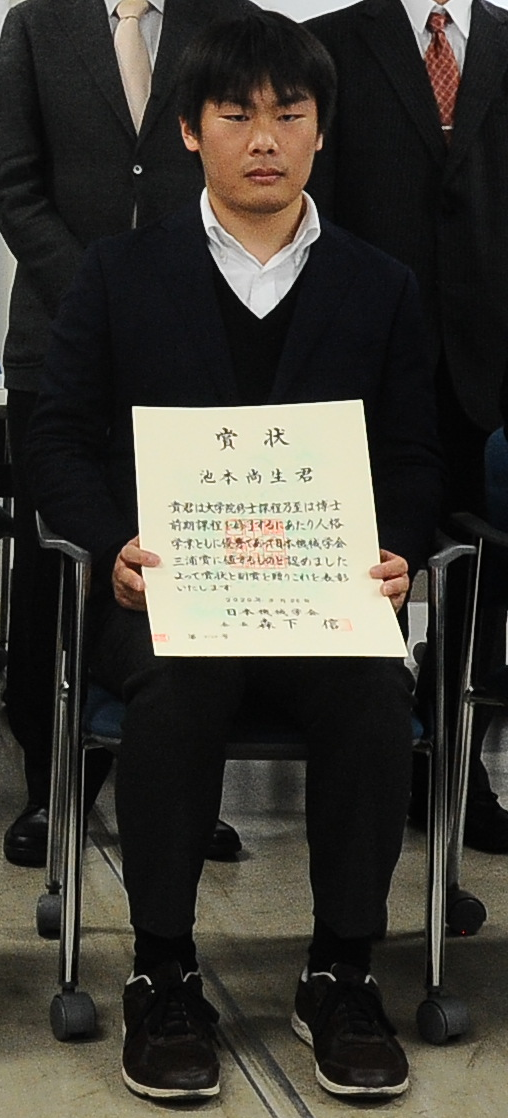 賞状
池本尚生君
貴君は大学院修士課程乃至は博士
前期課程を修了するにあたり人格
学業ともに優秀であって日本機械学会
三浦賞に値するものと認めました
よって賞状と副賞を贈りこれを表彰
いたします
2020年3月
日本機械学会
会長 森下 信
第 号